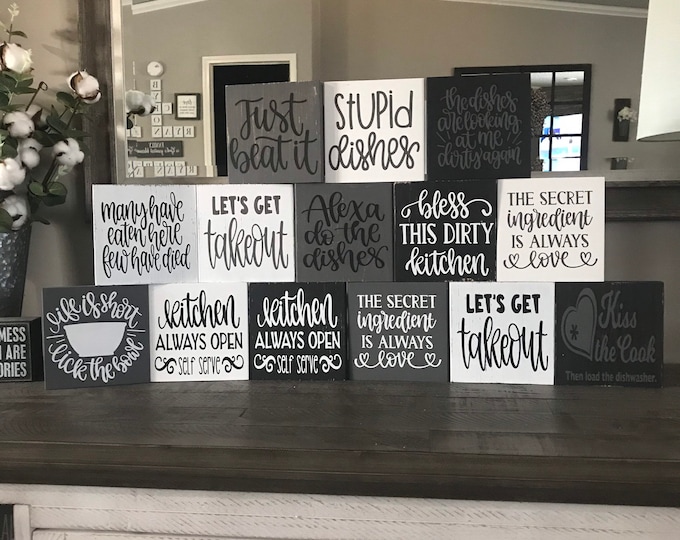 Just
beat it
STUPID
dishes
the dishes
are looking
at me
dirty again
many have
eaten here
few have died
LET'S GET
takeout
Alexa
do the
dishes
bless
THIS DIRTY
kitchen
THE SECRET
ingredient
IS ALWAYS
love
life is short
lick the bowl
kitchen
ALWAYS OPEN
SELF SERVE
kitchen
ALWAYS OPEN
SELF SERVE
THE SECRET
ingredient
IS ALWAYS
love
LET'S GET
takeout
Kiss
the Cook
Then load the dishwasher.
MESS
ARE
ORIES